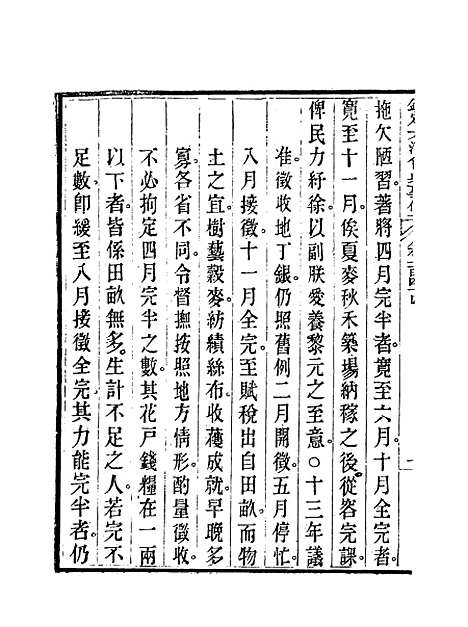 拖欠陋習。著將四月完半者。寬至六月。十月全完者。
寬至十一月。俟夏麥秋禾築場納稼之後。從容完課。
俾民力紓徐以副朕愛養黎元之至意。○十三年議
准徵收地丁銀仍照舊例二月開徵。五月停忙。
八月接徵。十一月全完。至賦稅出自田畝。而物
土之宜。樹藝穀麥。紡績絲布。收穫成就。早晚多
寡。各省不同。令督撫按照地方情形。酌量徵收。
不必拘定四月完半之數。其花戶錢糧在一兩
以下者。皆係田畝無多。生計不足之人。若完不
足數。卽緩至八月接徵全完。其力能完半者。仍